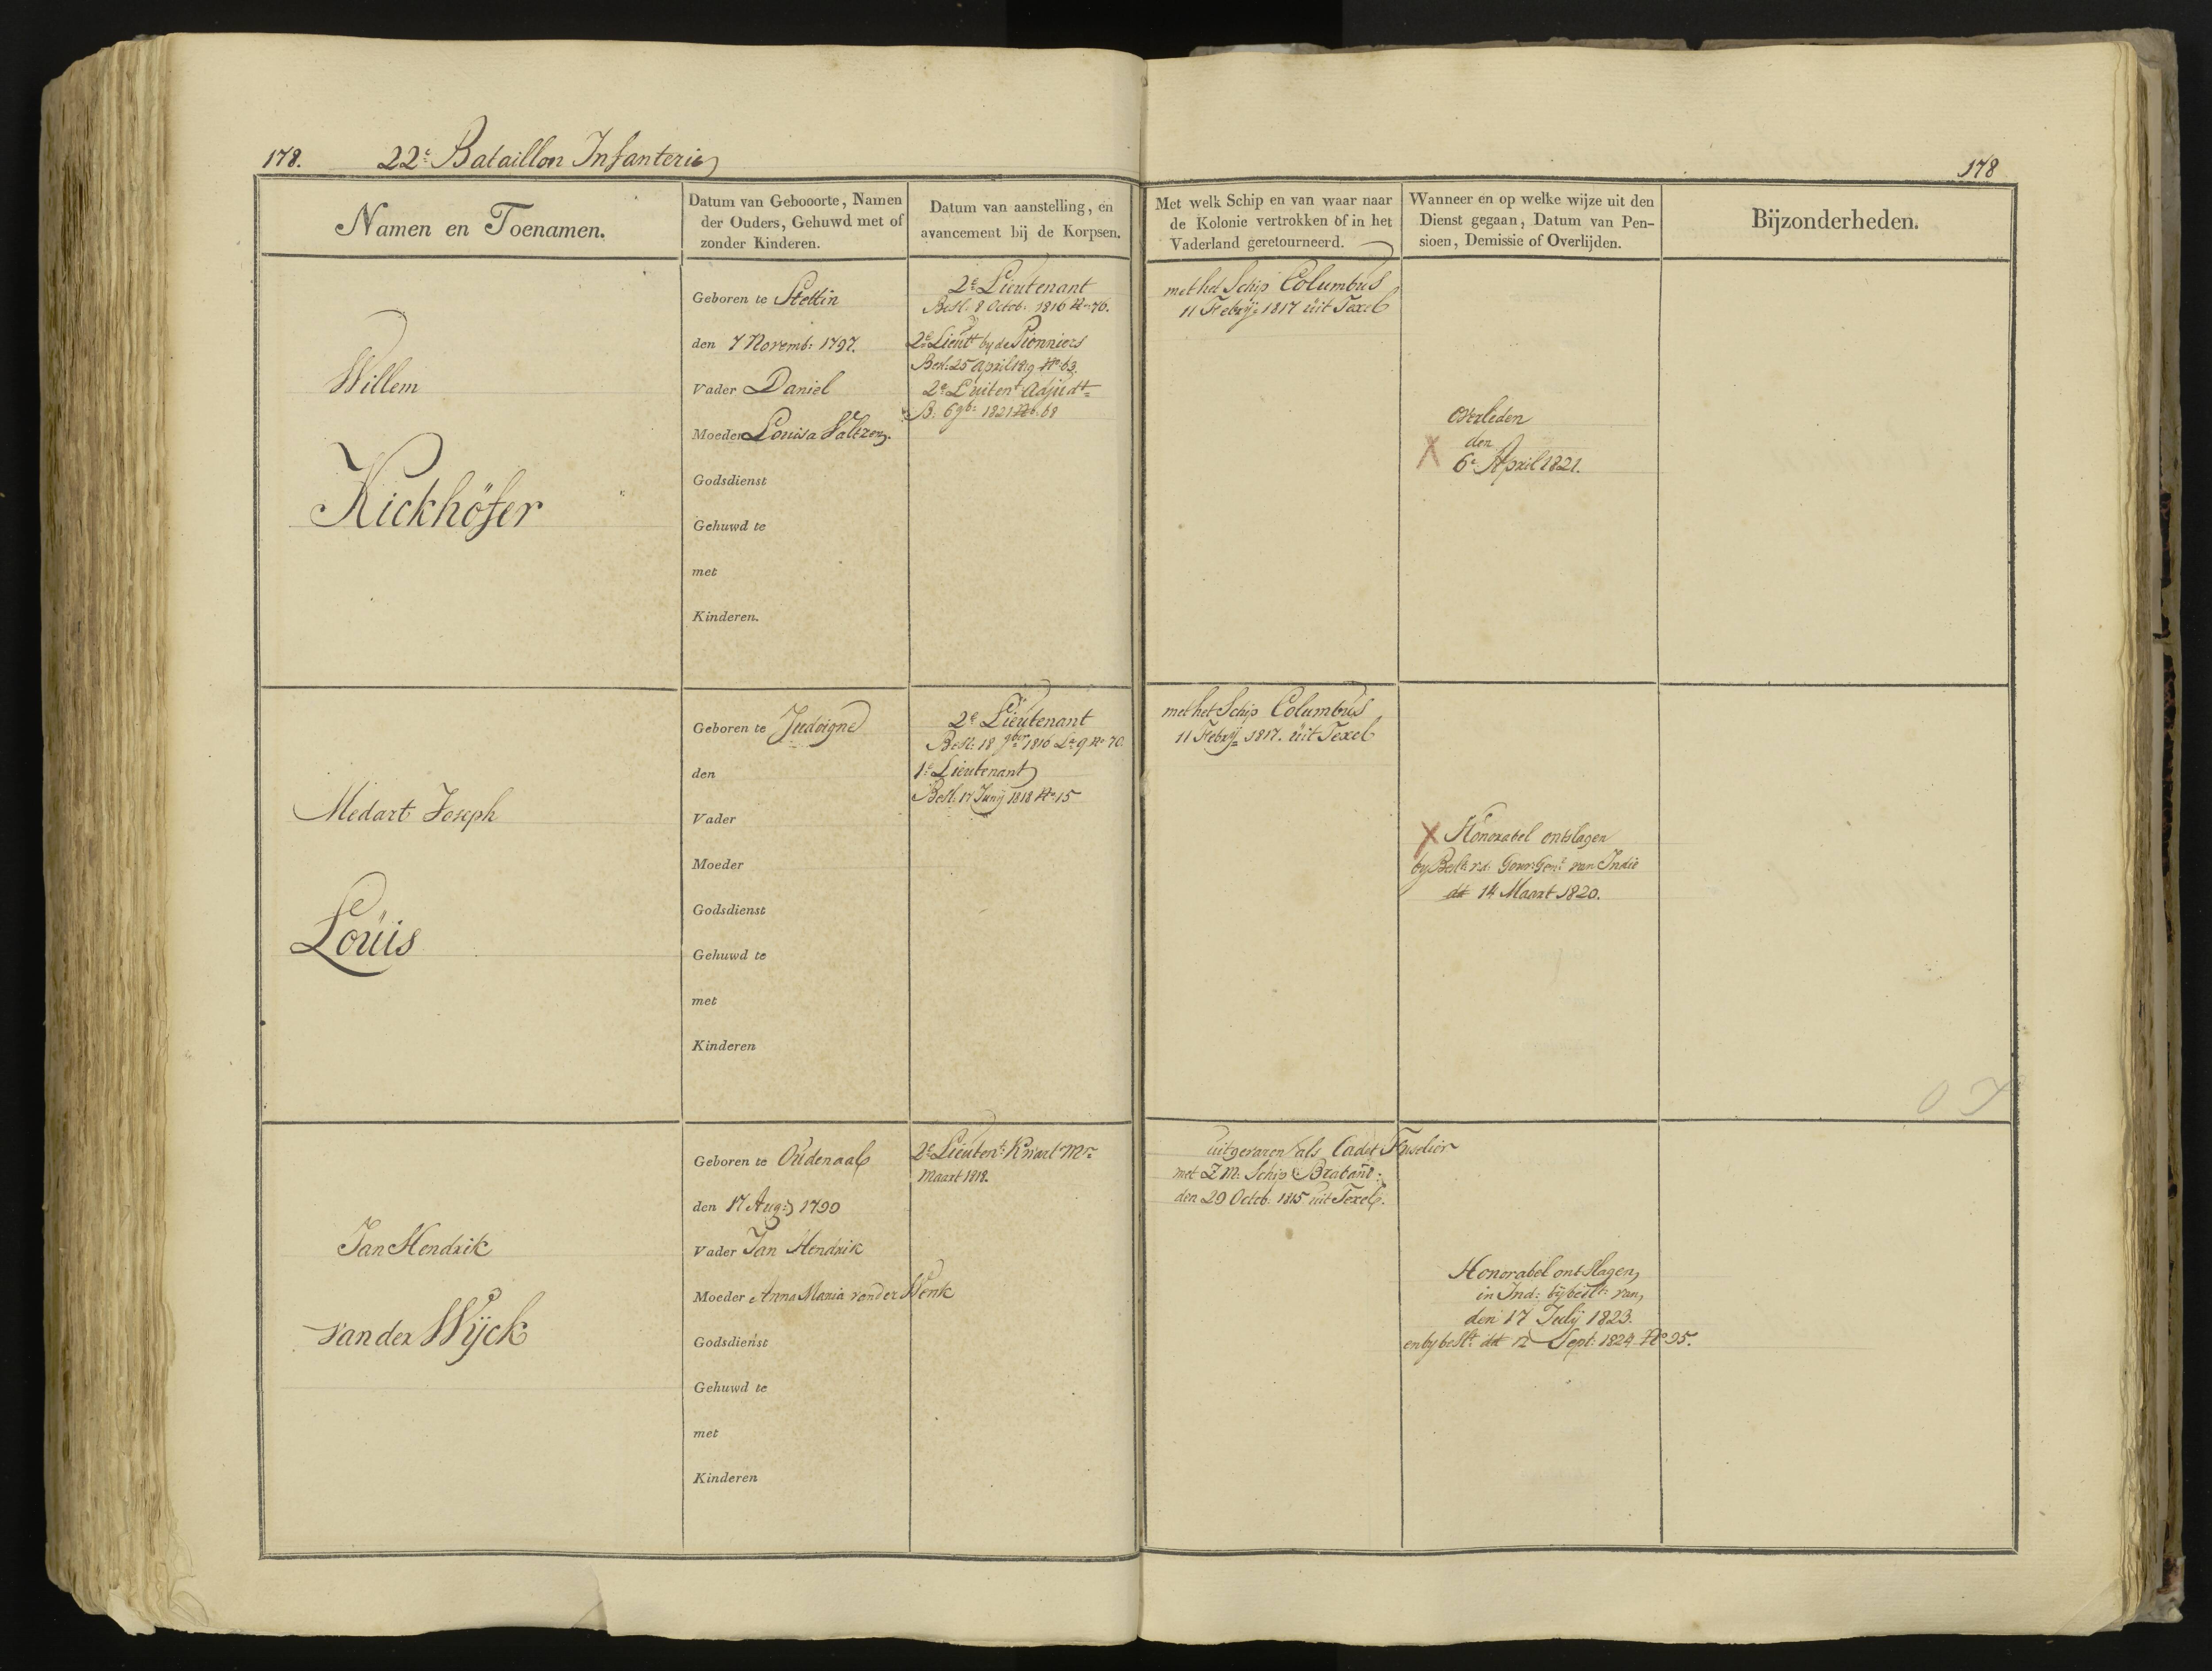 178. 22e Bataillon Infanterie
178
Namen en Toenamen.
Datum van Gebooorte, Namen
der Ouders, Gehuwd met of
zonder Kinderen.
Datum van aanstelling, en
avancement bij de Korpsen.
Met welk Schip en van waar naar
de Kolonie vertrokken of in het
Vaderland geretourneerd.
Wanneer en op welke wijze uit den
Dienst gegaan, Datum van Pen-
sioen, Demissie of Overlijden.
Bijzonderheden.
Willem
Kickhöfer
Geboren te Stettin
den 7 Novemb: 1797.
Vader Daniel
Moeder Louisa
Godsdienst
Gehuwd te
met
Kinderen.
2e Lieutenant
Besl: 8 Octob: 1816 No 76.
2e Lieutt by de Pionniers
Besl: 25 April 1819 No 63.
2e Luitent Adjudt
B: 6 9b: 1821 No 68
met het Schip Columbus
11 Febrij: 1817 uit Texel
Overleden
den
X 6e April 1821.
Medart Joseph
Louis
Geboren te Judoigne
den
Vader
Moeder
Godsdienst
Gehuwd te
met
Kinderen
2e Lieutenant
Besl: 18 9ber 1816 La 9 No 70
1e Lieutenant
Besl: 17 Junij 1818 No 15
met het Schip Columbus
11 Febrij 1817. uit Texel
X Honorabel ontslagen
by Beslt v.d. Gouvr Genl van Indie
dd 14 Maart 1820.
Jan Hendrik
van der Wijck
Geboren te Oudenaal
den 17 Aug: 1790
Vader Jan Hendrik
Moeder Anna Maria van der Wenk
Godsdienst
Gehuwd te
met
Kinderen
2e Lieutent Kwart Mr
Maart 1818.
uitgevaren als Cadet Fuselier
met Z.M. Schip Braband:
den 29 Octob: 1815 uit Texel.
Honorabel ontslagen,
in Ind: by beslt: van,
den 17 Julij 1823.
en by beslt dd 12 Sept: 1824 No 95.